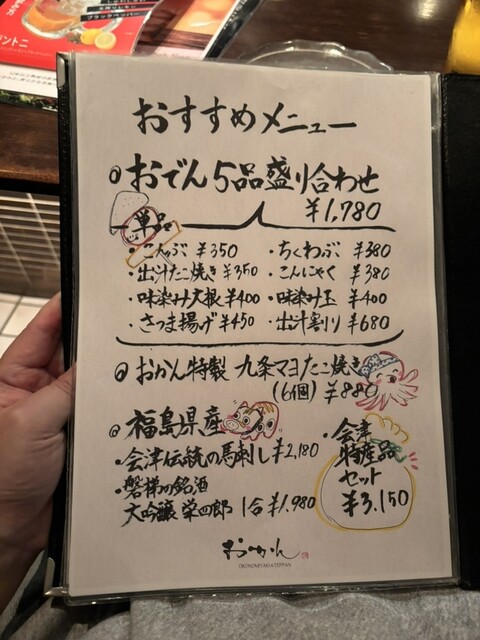 ブラックペッパー
おすすめメニュー
おでん5品盛り合わせ
¥1,780
単品
・こんぶ ¥350 ・ちくわぶ ¥380
・出汁たこ焼き ¥350 ・こんにゃく ¥380
・味染み大根 ¥400 ・味染み玉 ¥400
・さつま揚げ ¥450 ・出汁割り ¥680
おかん特製 九条マヨたこ焼き
(6個) ¥880
福島県産
・会津伝統の馬刺し ¥2,180
・磐梯の銘酒
大吟醸 栄四郎 1合 ¥1,980
・会津
特産品
セット
¥3,150
おかん
OKONOMIYAKI&TEPPAN